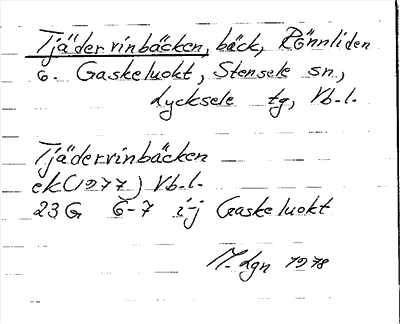 Tjädervinbäcken, bäck, Rönnliden
o. Gaskeluokt, Stensele sn.,
Lycksele tg, Vb.l.
Tjädervinbäcken
ek(1977) Vb.l.
23G 6-7 i-j Gaskeluokt
M. Lgn 1978